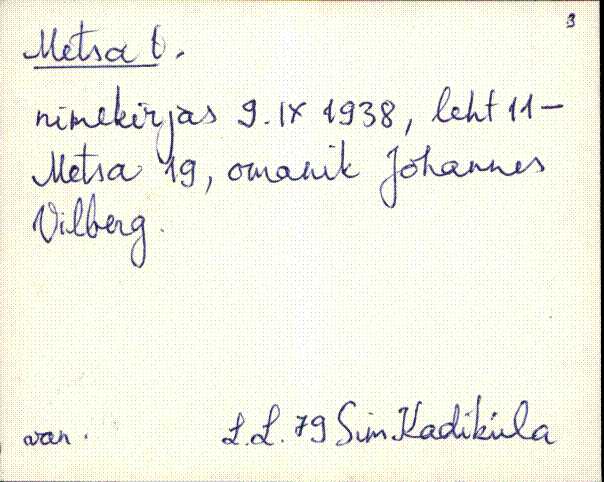 3
Metsa t.
nimekirjas 9.IX 1938, leht 11 –
Metsa 19, omanik Johannes
Vilberg.
van. L.L. 79 Sim Kadiküla